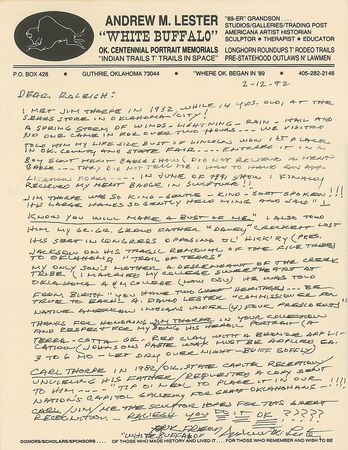 ANDREW M. LESTER
"WHITE BUFFALO"
OK. CENTENNIAL PORTRAIT MEMORIALS
"INDIAN TRAILS 'T' TRAILS IN SPACE"
"89-ER" GRANDSON . . .
STUDIOS/GALLERIES/TRADING POST
AMERICANA ARTIST HISTORIAN
SCULPTOR • THERAPIST • EDUCATOR
LONGHORN ROUNDUPS T' RODEO TRAILS
PRE-STATEHOOD OUTLAWS N' LAWMEN
P.O. BOX 428 • GUTHRIE, OKLAHOMA 73044 • "WHERE OK. BEGAN IN '89 • 405-282-2146
2-12-92
DEAR RALEIGH:
I MET JIM THORPE IN 1932, WHILE 14 YRS. OLD, AT THE
SEARS STORE IN OKLAHOMA CITY!
A SPRING STORM OF WINDS - LIGHTNING - RAIN - HAIL AND
OUR CAME IN FOR OVER TWO HOURS --- WE VISITED
TOLD HIM MY LIFE SIZE BUST OF LINCOLN WON 1ST PLACE
IN OK. COUNTY AND STATE FAIR ... ENTERED IT IN A
BOY SCOUT MERIT BADGE SHOW! DID NOT RECIEVE A MERIT
BADGE --- THEY DID NOT TELL ME I HAD TO HAVE AN APP-
LICATION FORM --- IN JUNE OF 1991 SHOW I FINALLY
RECIEVED MY MERIT BADGE IN SCULPTURE!!
JIM THORPE WAS SO KIND - GENTLE - KIND - SOFT SPOKEN!!!
HIS LARGE HANDS SO GENTLY HELD MINE AND SAID "I
KNOW YOU WILL MAKE A BUST OF ME" I ALSO TOLD
HIM MY GR. GR. GRAND FATHER "DAVEY" CROCKETT LOST
HIS SEAT IN CONGRESS OPPOSING OL' HICK'RY (PRES.
JACKSON ON HIS TRAGIC REMOVAL OF THE FIVE TRIBES
TO OKLAHOMA "TRAIL OF TEARS"
MY ONLY SON'S MOTHER A DESCENDANT OF THE CREEK
TRIBE (I MARRIED MY COLLEGE SWEETHEART AT
OKLAHOMA A & M COLLEGE (NOW OSU) HE WAS TOLD
FROM BIRTH "YOU HAVE TWO GREAT HERITAGES - BE
TRUE TO EACH". DAVID LESTER "COMMISSIONER FOR
NATIVE AMERICAN INDIANS UNDER (4) FOUR PRESIDENTS"
THANKS FOR HONORING JIM THORPE IN YOUR COLLECTION
AND RESPECT FOR MY DOING HIS HEROIC PORTRAIT (A
TERRA-COTTA OK. RED CLAY WITH A BRONZE APPLI-
CATION (JOHNSONS PASTE WAX MUST BE APPLIED EA.
3 TO 6 MO - LET DRY OVER NIGHT - BUFF SOFTLY)
CARL THORPE IN 1982/OK. STATE CAPITAL RECEPTION
UNVEILING HIS FATHER/REQUESTED A COPY SENT
TO HIM --- TO PLACE IT IN OUR
NATION'S CAPITOL GALLERY FOR GREAT OKLAHOMANS -!!!!
CARL/JIM/ME THE SCULPTOR HOPES FOR THIS GREAT
RECOGNITION - RALEIGH YOU DO IT OK ?????
YOUR FRIEND
"WHITE BUFFALO"
DONORS/SCHOLARS/SPONSORS . . . . OF THOSE WHO MADE HISTORY AND LIVED IT . . . FOR THOSE WHO REMEMBER AND WISH TO BE